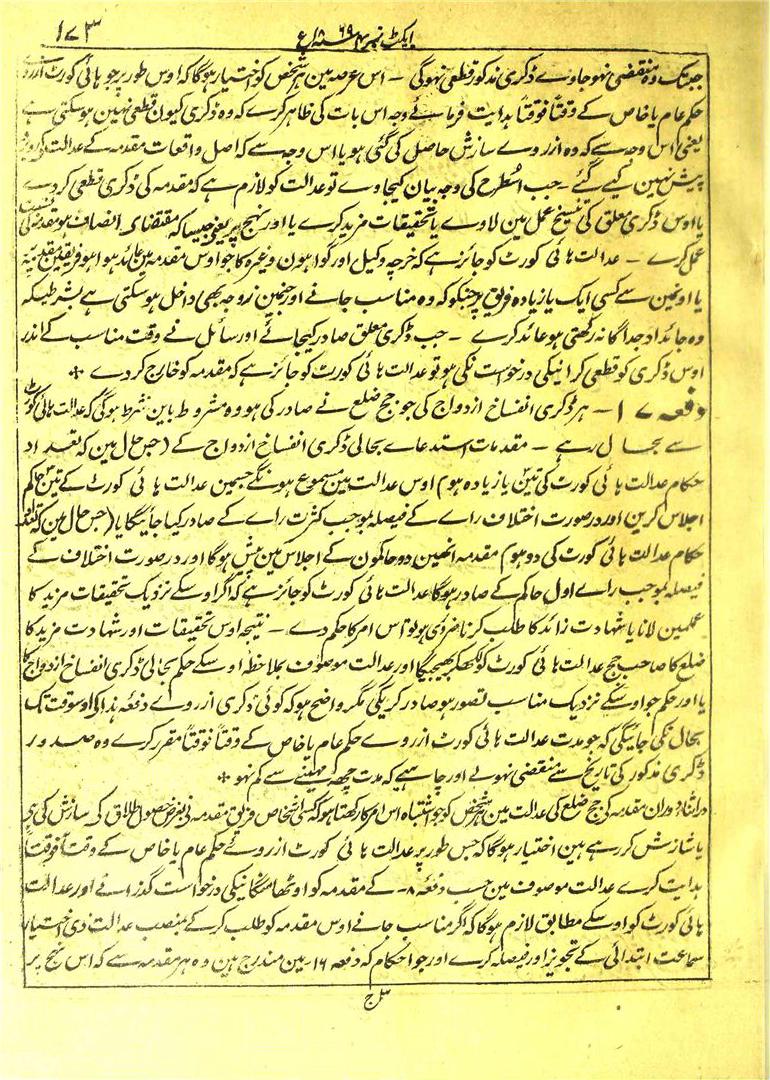 ایکٹ نمبر ۴ سنہ ۱۸۶۹ع
۱۷۳
جبتک وہ منقضی نہوجاوے ڈکری مذکور قطعی نہوگی - اس عرصہ مین ہر شخص کو اختیار ہوگا کہ اوس طور پر جو ہائی کورٹ ازروے
حکم عام یا خاص کے وقتاً فوقتاً ہدایت فرمائے وجہ اس بات کی ظاہر کرے کہ وہ ڈکری کیون قطعی نہین ہوسکتی ہے
یعنی اس وجہ سے کہ وہ ازروے سازش حاصل کی گئی ہو یا اس وجہ سے کہ اصل واقعات مقدمہ کے عدالت کی روبرو
پیش نہین کیے گئے - جب اسطرح کی وجہ بیان کیجاوے تو عدالت کو لازم ہے کہ مقدمہ کی ڈکری قطعی کردے
یا اوس ڈکری معلق کی تنسیخ عمل مین لاوے یا تحقیقات مزید کرے یا اور نہج پر یعنی جیسا کہ مقتضاے انصاف ہو مقدمہ کی نسبت
عمل کرے - عدالت ہائی کورٹ کو جائز ہے کہ خرچہ وکیل اور گواہون وغیرہ کا جو اوس مقدمہ مین عائد ہوا ہو فریقین مقدمہ
یا اونمین سے کسی ایک یا زیادہ فریق پر جنکو کہ وہ مناسب جانے اور جنمین زوجہ بھی داخل ہوسکتی ہے بشرطیکہ
وہ جائداد جداگانہ رکھتی ہو عائد کرے - جب ڈکری معلق صادر کیجائے اور سائل نے وقت مناسب کے اندر
اوس ڈکری کو قطعی کرانیکی درخواست نکی ہو تو عدالت ہائی کورٹ کو جائز ہے کہ مقدمہ کو خارج کردے ٭
دفعہ ۱۷ - ہر ڈکری انفساخ ازدواج کی جو جج ضلع نے صادر کی ہو وہ مشروط باین شرط ہوگی کہ عدالت ہائی کورٹ
سے بحال رہے - مقدمات استدعاے بحالی ڈکری انفساخ ازدواج کے (جس حال مین کہ تعداد
حکام عدالت ہائی کورٹ کی تین یا زیادہ ہو) اوس عدالت مین مسموع ہونگے جسمین عدالت ہائی کورٹ کے تین حاکم
اجلاس کرین اور درصورت اختلاف راے کے فیصلہ بموجب کثرت راے کے صادر کیا جائیگا یا (جس حال مین کہ تعداد
حکام عدالت ہائی کورٹ کی دو ہو) مقدمہ انھین دو حاکمون کے اجلاس مین پیش ہوگا اور درصورت اختلاف کے
فیصلہ بموجب راے اول حاکم کے صادر ہوگا عدالت ہائی کورٹ کو جائز ہے کہ اگر اوسکے نزدیک تحقیقات مزید کا
عملمین لانا یا شہادت زائد کا طلب کرنا ضروری ہو تو اس امر کا حکم دے - نتیجہ اوس تحقیقات اور شہادت مزید کا
ضلع کا صاحب جج عدالت ہائی کورٹ کو لکھکر بھیجیگا اور عدالت موصوف بملاحظہ اوسکے حکم بحالی ڈکری انفساخ ازدواج کا
یا اور حکم جو اوسکے نزدیک مناسب تصور ہو صادر کریگی مگر واضح ہو کہ کوئی ڈکری ازروے دفعہ ہذا کی اوسوقت تک
بحال نکی جائیگی کہ جو مدت عدالت ہائی کورٹ ازروے حکم عام یا خاص کے وقتاً فوقتاً مقرر کرے وہ صدور
ڈکری مذکور کی تاریخ سے منقضی نہولے اور چاہیے کہ مدت چھ مہینے سے کم نہو ٭
دراثناء دوران مقدمہ کی جج ضلع کی عدالت مین ہر شخص کو جو اشتباہ اس امر کا رکھتا ہو کہ کسی اشخاص فریق مقدمہ نی بغرض حصول طلاق کی سازش کی ہی
یا سازش کررہے ہین اختیار ہوگا کہ جس طور پر عدالت ہائی کورٹ ازروے حکم عام یا خاص کے وقتاً فوقتاً
ہدایت کرے عدالت موصوف مین حسب دفعہ ۸ - کے مقدمہ کو اوٹھا منگانیکی درخواست گذرانے اور عدالت
ہائی کورٹ کو اوسکے مطابق لازم ہوگا کہ اگر مناسب جانے اوس مقدمہ کو طلب کرکے بمنصب عدالت ذی اختیار
سماعت ابتدائی کے تجویز اور فیصلہ کرے اور جو احکام کہ دفعہ ۱۶ - مین مندرج ہین وہ ہر مقدمہ سے کہ اس نہج پر